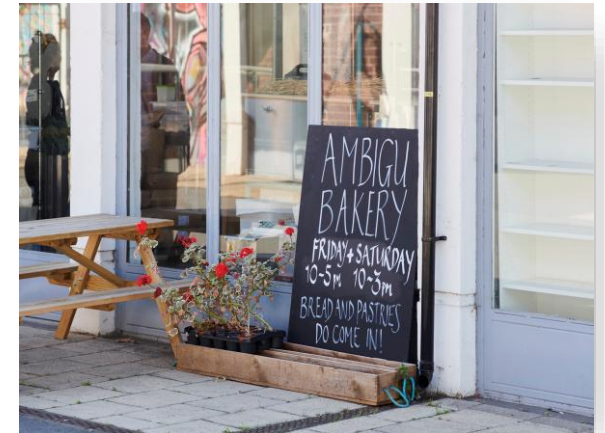 AMBIGU
BAKERY
FRIDAY + SATURDAY
10-5pm 10-3pm
BREAD AND PASTRIES
DO COME IN!